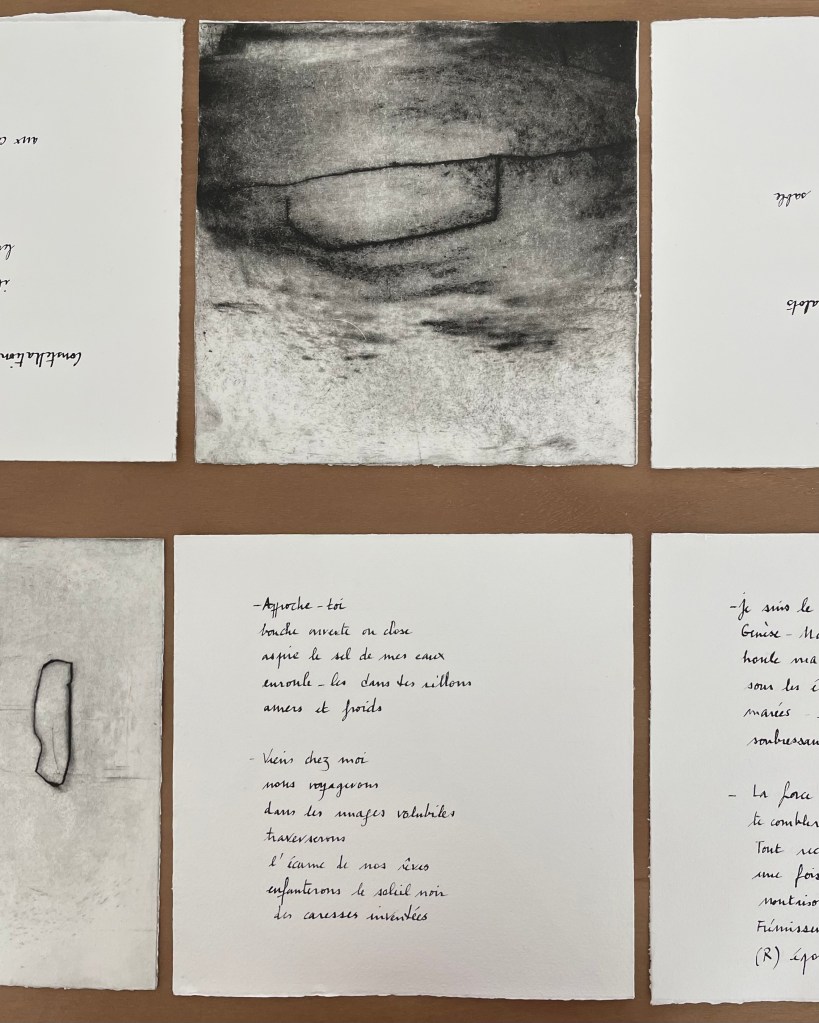 aux
les
Constellation
sable
alots
– Approche – toi
bouche ouverte ou close
aspire le sel de mes eaux
enroule – les dans tes sillons
amers et froids
– Viens chez moi
nous voyagerons
dans les nuages volubiles
traverserons
l'écume de nos rêves
enfanterons le soleil noir
des caresses inventées
– je suis le
Genèse –
houle
sous les
marées –
soubressau
– La force
te combler
Tout
une fois
Frémisse
(R)